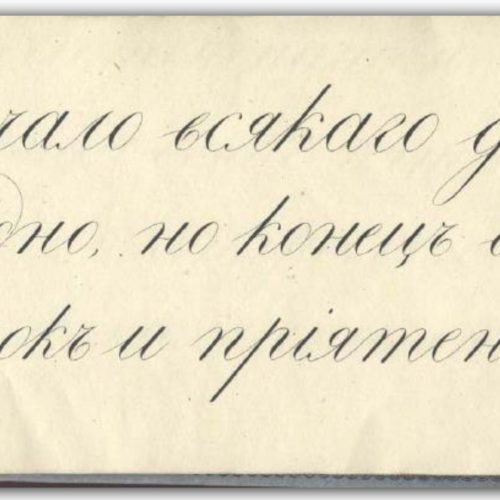 чало всякаго д
дно, но конецъ е
окъ и пріятен